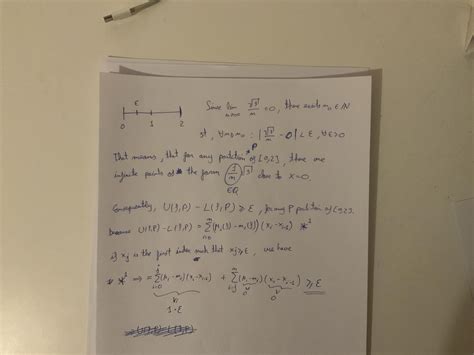 ε
0 1 2
Since lim n→∞ √3/m = 0, there exists n₀ ∈ ℕ
st, ∀n≥n₀ : |√3/m - 0| < ε, ∀ε>0
P
That means, that for any partition of [0,2], there are
infinite points of the form (1/m)√3 close to x=0.
∈Q
Consequently, U(f,P) - L(f,P) ≥ ε, for any P partition of [0,2].
because U(f,P) - L(f,P) = Σ (M_i(f) - m_i(f)) (x_i - x_{i-1}) *²
if x_j is the first index such that x_j ≥ ε, we have
*² ⇒ = Σ (M_i - m_i)(x_i - x_{i-1}) + Σ (M_i - m_i)(x_i - x_{i-1}) ≥ ε
1·ε 0 0